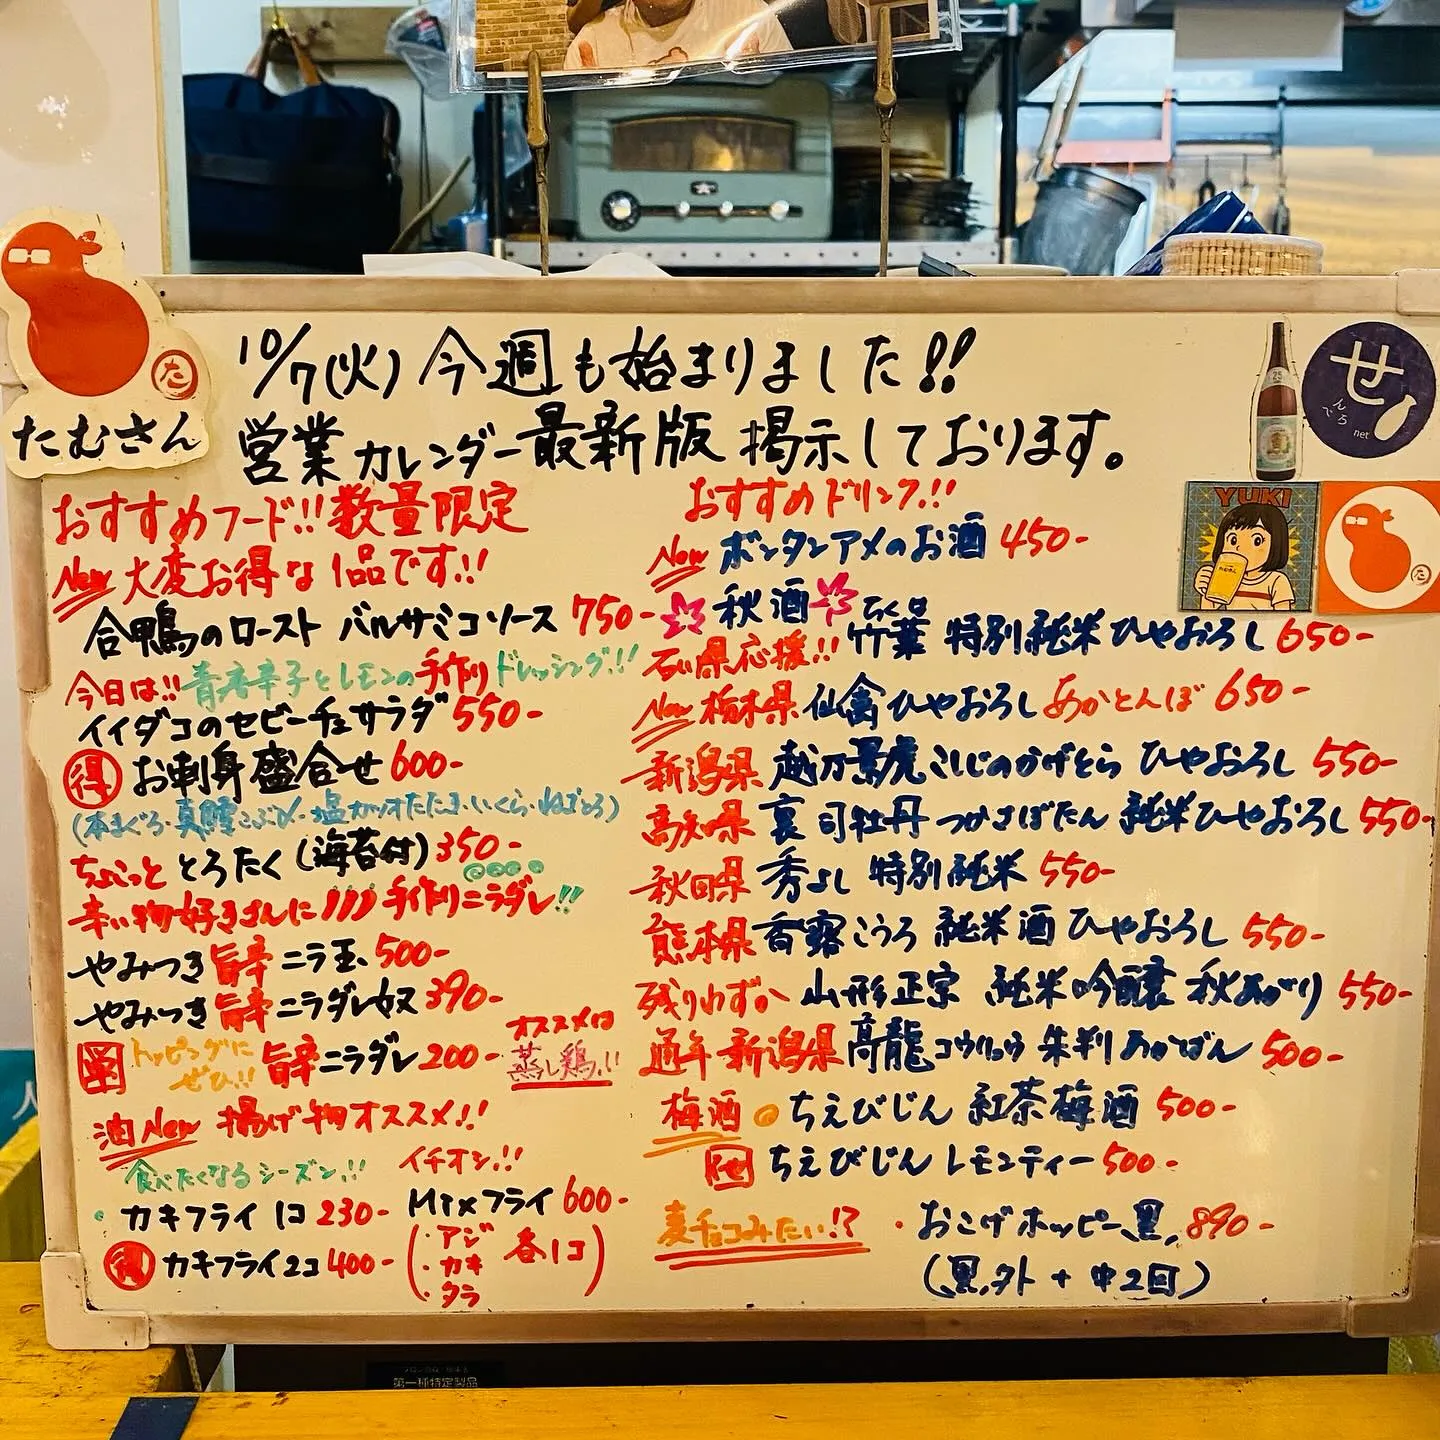 10/7(火)今週も始まりました!!
営業カレンダー最新版 掲示しております。
たむさん
た
せ
んでろ
net
YUKI
おすすめフード!!数量限定
New 大変お得な1品です!!
合鴨のロースト バルサミコソース 750-
今日は!!青唐辛子とレモンの手作りドレッシング!!
イイダコのセビーチェサラダ 550-
得 お刺身盛合せ 600-
(本まぐろ・真鱈こぶ〆・塩カツオたたき・いくら・ねぎとろ)
ちょこっと とろたく(海苔付)350-
辛い物好きさんに))) 手作りニラダレ!!
やみつき旨辛ニラ玉 500-
やみつき旨辛ニラダレ奴 390-
トッピングにぜひ!! 旨辛ニラダレ 200-
オススメは
蒸し鶏!!
油New 揚げ物オススメ!!
食べたくなるシーズン!!
・カキフライ 1コ 230-
得 カキフライ2コ 400-
イチオシ!!
Mixフライ 600-
(・アジ ・カキ ・タラ 各1コ)
おすすめドリンク!!
New ボンタンアメのお酒 450-
秋酒
石川県応援!! 竹葉 特別純米 ひやおろし 650-
New 栃木県 仙禽 ひやおろし あかとんぼ 650-
新潟県 越乃景虎 こしじのかげとら ひやおろし 550-
高知県 裏 司牡丹 つかさぼたん 純米ひやおろし 550-
秋田県 秀よし 特別純米 550-
熊本県 香露 こうろ 純米酒 ひやおろし 550-
残りわずか 山形正宗 純米吟醸 秋あがり 550-
通年 新潟県 高龍 コウリュウ 朱判 あかばん 500-
梅酒 ちえびじん 紅茶梅酒 500-
ちえびじん レモンティー 500-
麦チョコみたい!? ・おこげホッピー黒 890-
(黒、外 + 中2回)
第一種特定製品